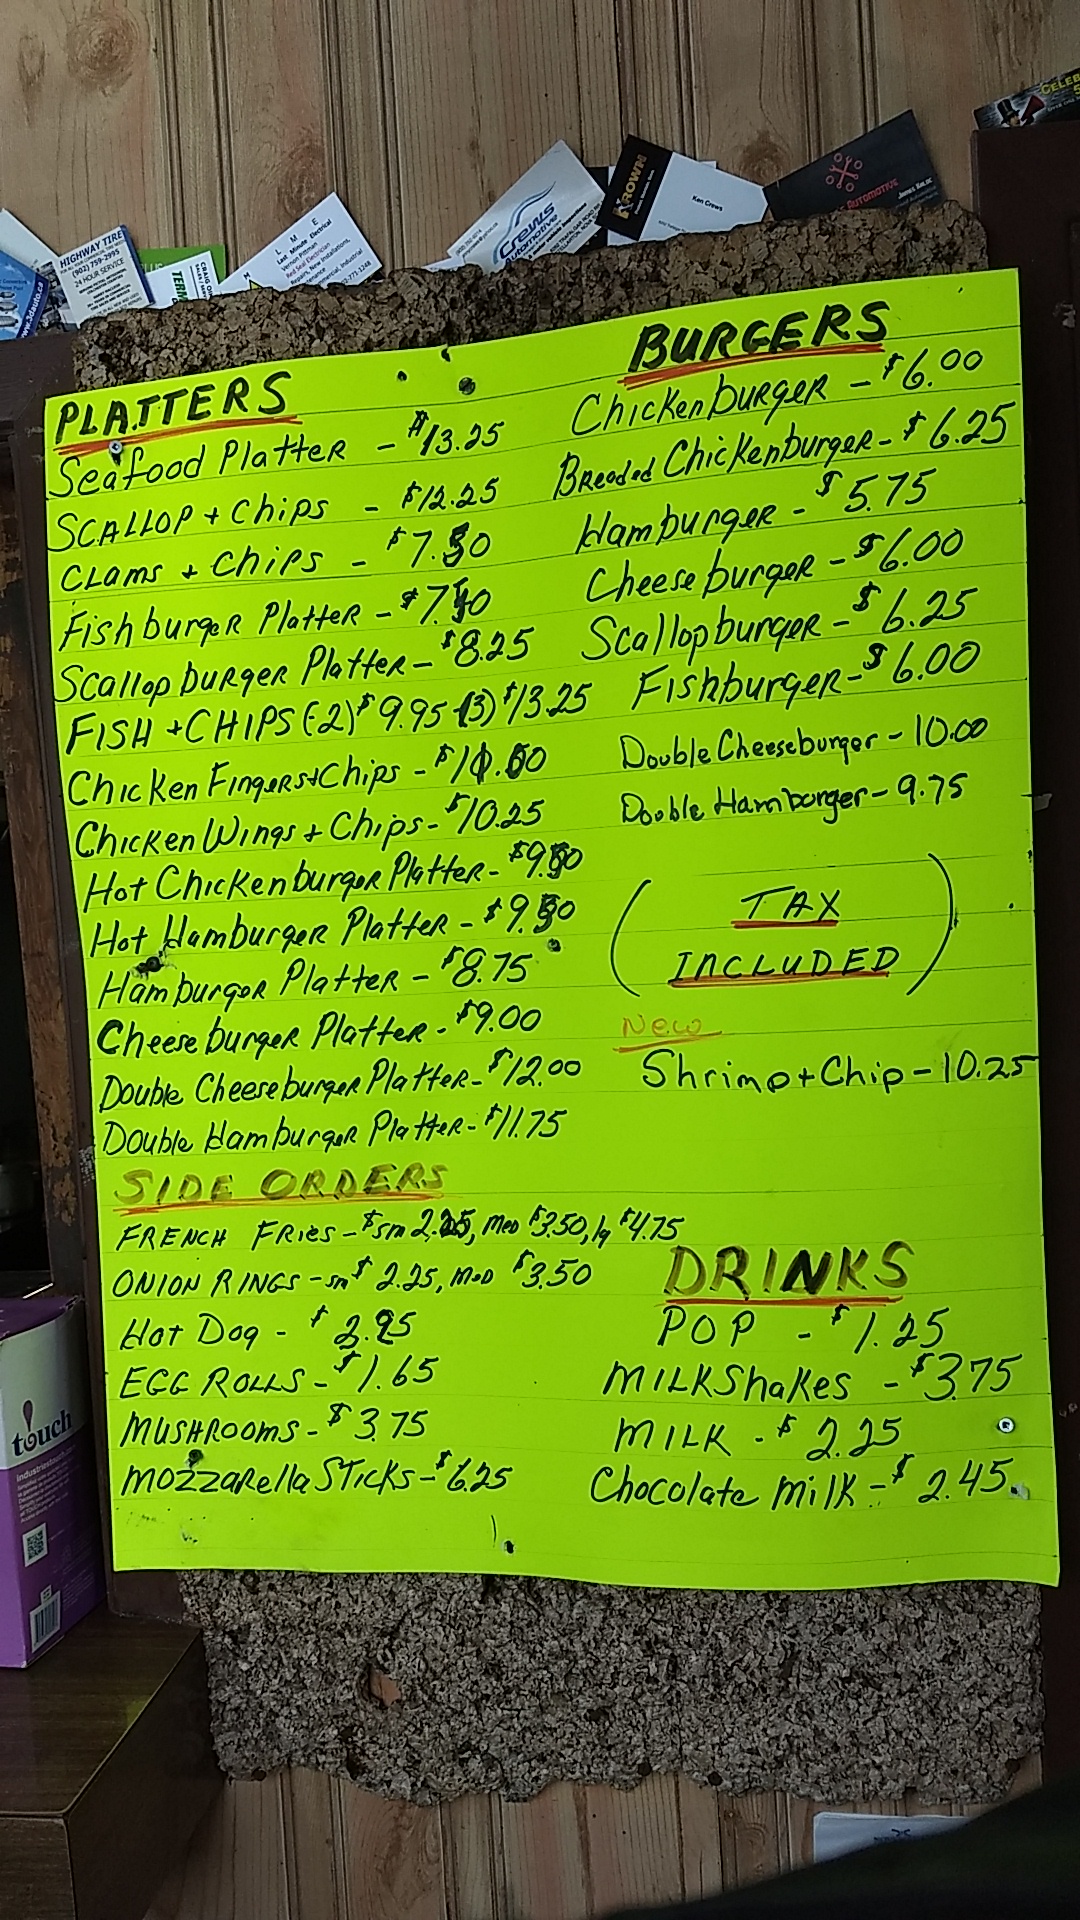 HIGHWAY TIRE
(902) 759-2995
24 HOUR SERVICE
www.3dauto.ca
L M E
Last Minute Electrical
Vernon Pittman
Red Seal Electrician
Crews
Automotive
KROWN
Ken Crews
AUTOMOTIVE
PLATTERS
Seafood Platter - $13.25
SCALLOP + Chips - $12.25
CLams + Chips - $7.50
Fishburger Platter - $7.
Scallop burger Platter - $8.25
FISH + CHIPS (-2) $9.95 (3) $13.25
Chicken Fingers + Chips -
Chicken Wings + Chips - $10.25
Hot Chicken burger Platter -
Hot Hamburger Platter - $9.50
Hamburger Platter - $8.75
Cheese burger Platter - $9.00
Double Cheeseburger Platter - $12.00
Double Hamburger Platter - $11.75
SIDE ORDERS
FRENCH FRies - $sm 2.25, med $3.50, lg $4.75
ONION RINGS - sm $2.25, med $3.50
Hot Dog - $2.95
EGG ROLLS - $1.65
MUSHROOMS - $3.75
MOZZARella STicks - $6.25
BURGERS
Chicken burger - $6.00
Breaded Chickenburger - $6.25
Hamburger - $5.75
Cheese burger - $6.00
Scallopburger - $6.25
Fishburger - $6.00
Double Cheeseburger - 10.00
Double Hamburger - 9.75
(TAX
INCLUDED)
New
Shrimp + Chip - 10.25
DRINKS
POP - $1.25
MILKShakes - $3.75
MILK - $2.25
Chocolate milk - $2.45
touch